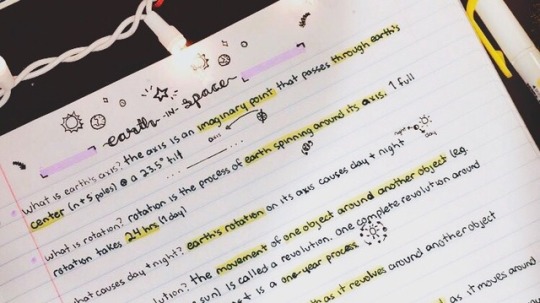 earth in space
what is earth's axis? the axis is an imaginary point that passes through earth's
center (n + s poles) @ a 23.5° tilt
axis
night
day
what is rotation? rotation is the process of earth spinning around its axis. 1 full
rotation takes 24 hrs (1 day)
what causes day + night? earth's rotation on its axis causes day + night
the movement of one object around another object (e.g.
sun) is called a revolution. one complete revolution around
is a one-year process
as it revolves around another object
as it moves around